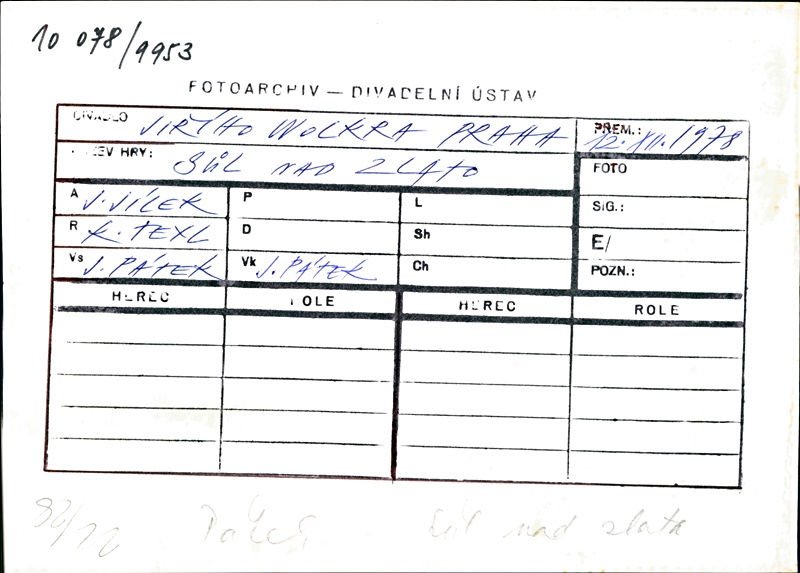 10 078/9953
FOTOARCHIV — DIVADELNÍ ÚSTAV
DIVADLO JIŘÍHO WOLKRA PRAHA
PREM.: 12. XII. 1978
NÁZEV HRY: SŮL NAD ZLATO
FOTO
A J. JÍLEK P L SIG.:
R K. TEXL D Sh E/
Vs J. PÁTEK Vk J. PÁTEK Ch POZN.:
HEREC ROLE HEREC ROLE
Sůl nad zlato